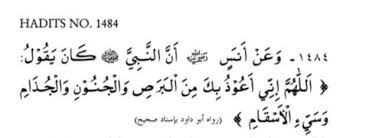 HADITS NO. 1484
١٤٨٤- وَعَنْ أَنَسٍ ﵁ أَنَّ النَّبِيَّ ﷺ كَانَ يَقُوْلُ:
﴿ اَللَّهُمَّ إِنِّي أَعُوْذُ بِكَ مِنَ الْبَرَصِ وَالْجُنُوْنِ وَالْجُذَامِ
وَسَيِّءِ الْأَسْقَامِ ﴾ (رواه أبو داود بإسناد صحيح)